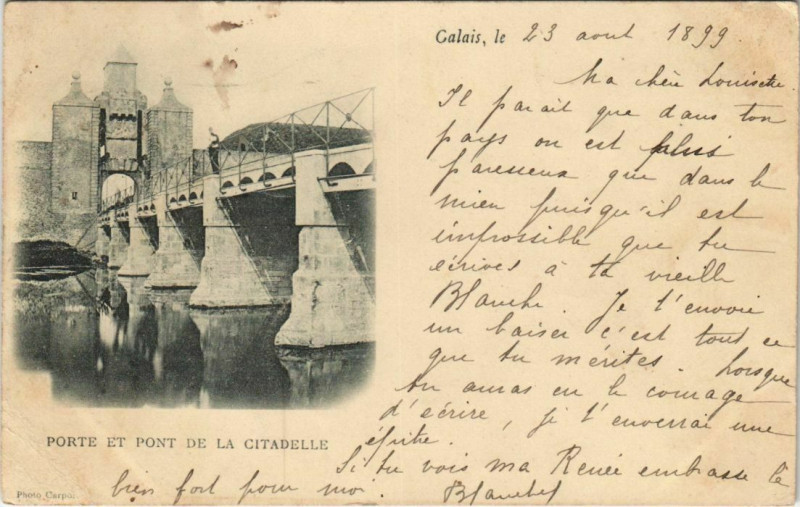 Calais, le 23 aout 1899.
Ma chère Louisette
Il parait que dans ton
pays on est plus
paresseux que dans le
mien puisqu'il est
impossible que tu
écrives à ta vieille
Blanche. Je t'envoie
un baiser c'est tout ce
que tu mérites. Lorsque
tu auras eu le courage
d'écrire, je t'enverrai une
épitre.
Si tu vois ma Renée embrasse la
bien fort pour moi.
PORTE ET PONT DE LA CITADELLE
Photo Carpot